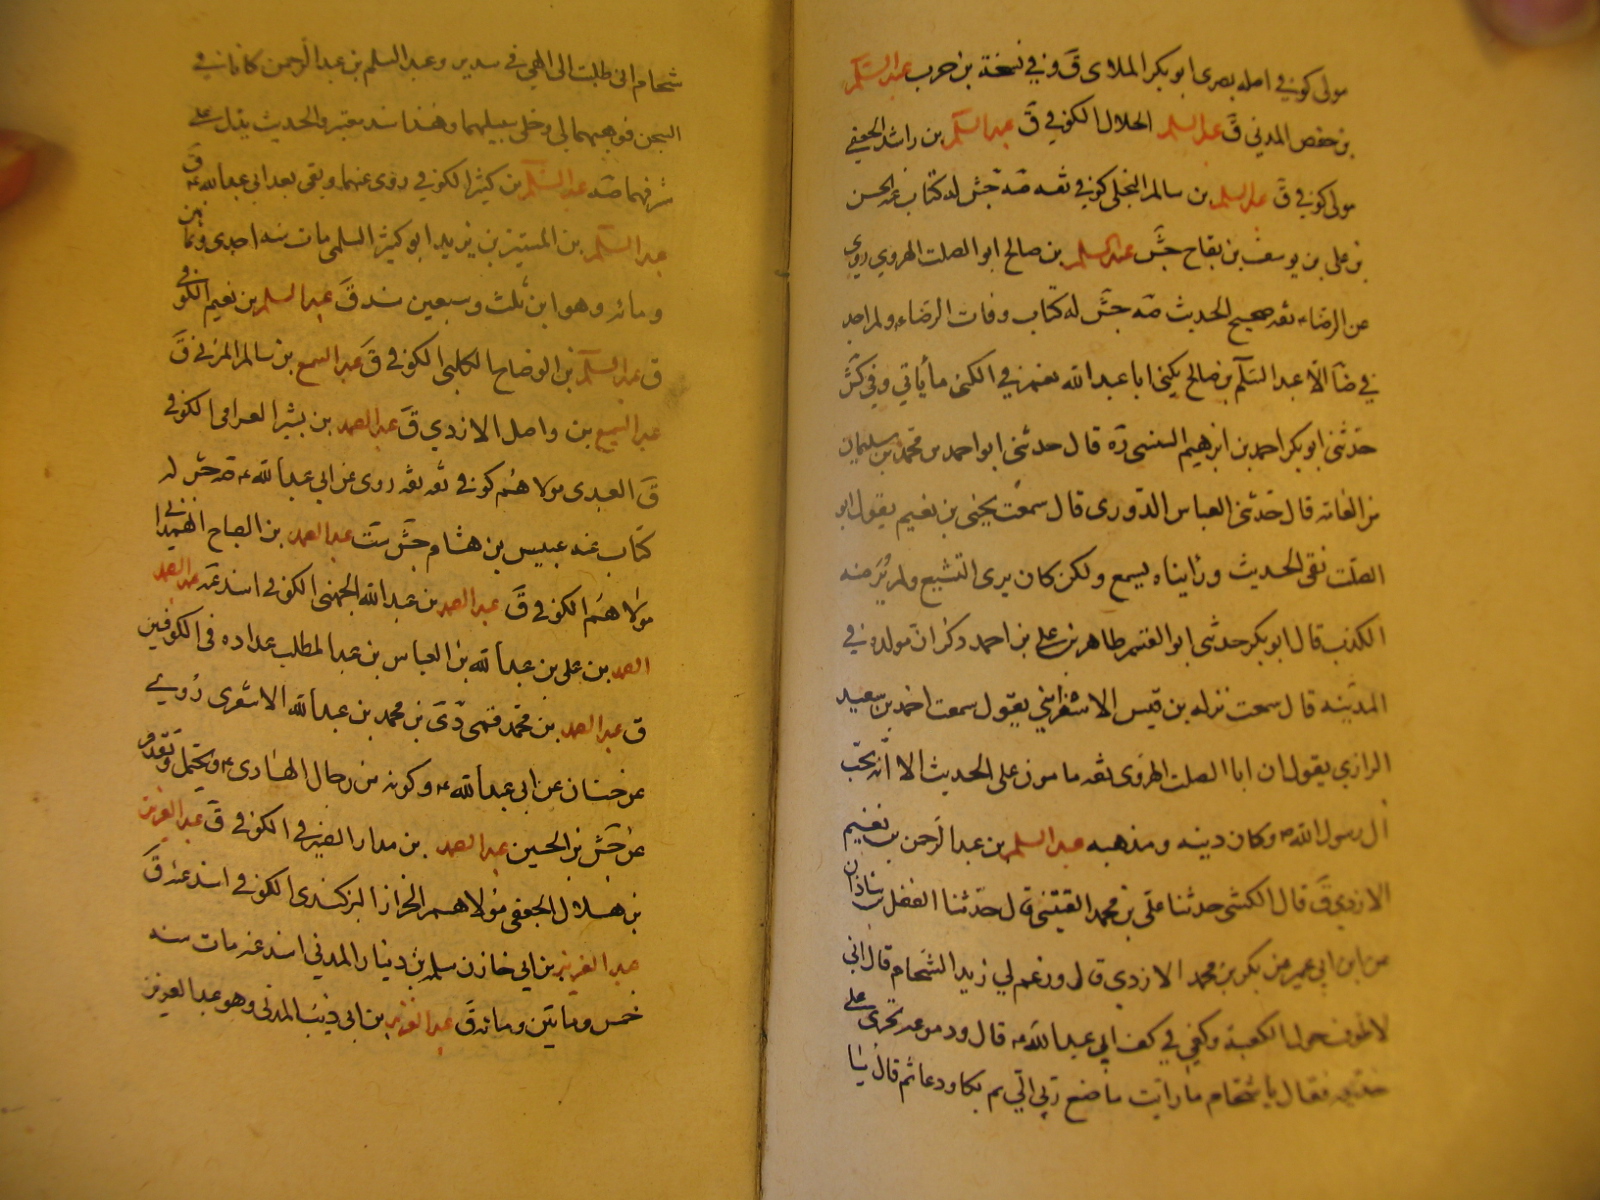 مولى كوفي اصله بصرى ابو بكر الملاى ق وفي نسخة بن حرب عبد السلم
بن حفص المدني ق عبد السلم الحلال الكوفي ق عبد السلم بن راشد الجعفي
مولى كوفي ق عبد السلم بن سالم البجلي كوفي ثقه صه جش له كتاب عنه الحسن
بن على بن يوسف بن بقاح جش عبد السلم بن صالح ابو الصلت الهروي روى
عن الرضاء ثقه صحيح الحديث صه جش له كتاب وفات الرضاء ولم اجد
في ضا الا عبد السلم بن صالح يكنى ابا عبد الله نعم في الكنى ما يأتي وفي كش
حدثنى ابو بكر احمد بن ابرهيم السنسى ره قال حدثنى ابو احمد محمد بن سليمان
من العامه قال حدثنى العباس الدورى قال سمعت يحيى بن نعيم يقول ابو
الصلت نقى الحديث ورايناه يسمع ولكن كان يرى التشيع ولم ير منه
الكذب قال ابو بكر حدثنى ابو القسم طاهر بن على بن احمد وذكر ان مولده في
المدينه قال سمعت نزله بن قيس الاسفراينى يقول سمعت احمد بن سعيد
الرازي يقول ان ابا الصلت الهروى ثقه مامون على الحديث الا انه يحب
ال رسول الله ص وكان دينه ومذهبه عبد السلم بن عبد الرحمن بن نعيم
الازدي ق قال الكشى حدثنا على بن محمد القتيبى قال حدثنا الفضل بن شاذان
عن ابن ابي عمير عن بكر بن محمد الازدي قال وزعم لي زيد الشحام قال انى
لاطوف حول الكعبة وكفي في كف ابي عبد الله ع قال ودموعه تجرى على
خديه فقال يا شحام ما رايت ما صنع ربي الي ثم بكا ودعا ثم قال يا
شحام انى طلبت الى الهي في سدير وعبد السلم بن عبد الرحمن كانا في
السجن فوهبهما لي وخلى سبيلهما وهذا سند معتبر والحديث يدل على
شرفهما صه عبد السلم بن كثير الكوفي روى عنهما وبقى بعد ابي عبد الله ع ق
عبد السلم بن المستنير بن يزيد ابو كثير السلمي مات سنه احدى وثمانين
ومائه وهو ابن ثلث وسبعين سنه ق عبد السلم بن نعيم الكوفي
ق عبد السلم بن الوضاح الكلبى الكوفي ق عبد السميع بن سالم المزني ق
عبد السميع بن واصل الازدي ق عبد الصمد بن بشير العرامى الكوفي
ق العبدى مولاهم كوفي ثقه ثقه روى عن ابي عبد الله ع صه جش له
كتاب عنه عبيس بن هشام جش ست عبد الصمد بن الصباح الهمداني
مولاهم الكوفي ق عبد الصمد بن عبد الله الجهني الكوفي اسند عنه عبد
الصمد بن على بن عبد الله بن العباس بن عبد المطلب عداده في الكوفيين
ق عبد الصمد بن محمد قمى دى بن محمد بن عبد الله الاشعرى روى
عن حنان عن ابي عبد الله ع وكونه من رجال الهادى ع ويحتمل وتقدم
عن جش بن الحسين عبد الصمد بن مدار الصيرفي الكوفي ق عبد العزيز
بن هلال الجعفى مولاهم الخزاز البزكندى الكوفي اسند عنه ق
عبد العزيز بن ابي خازن سلمه بن دينار المدني اسند عنه مات سنه
خمس وماتين ومائه ق عبد العزيز بن ابي ذيب المدنى وهو عبد العزيز